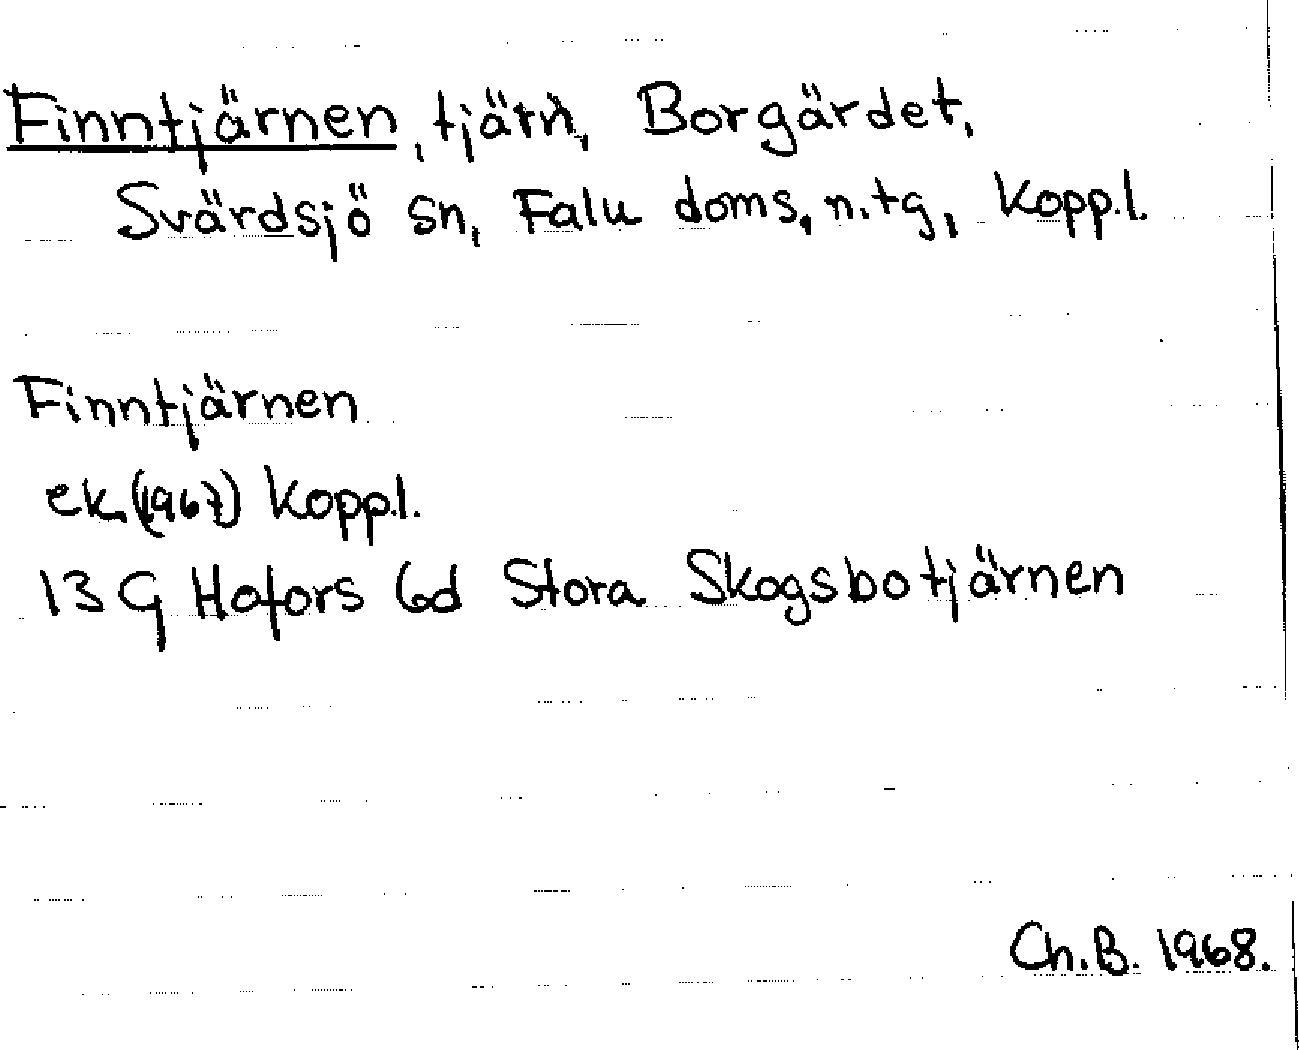 Finntjärnen, tjärn, Borgärdet,
Svärdsjö sn, Falu doms. n. tg, Koppl.
Finntjärnen
ek. (1967) Koppl.
13 G Hofors 6d Stora Skogsbotjärnen
Ch. B. 1968.